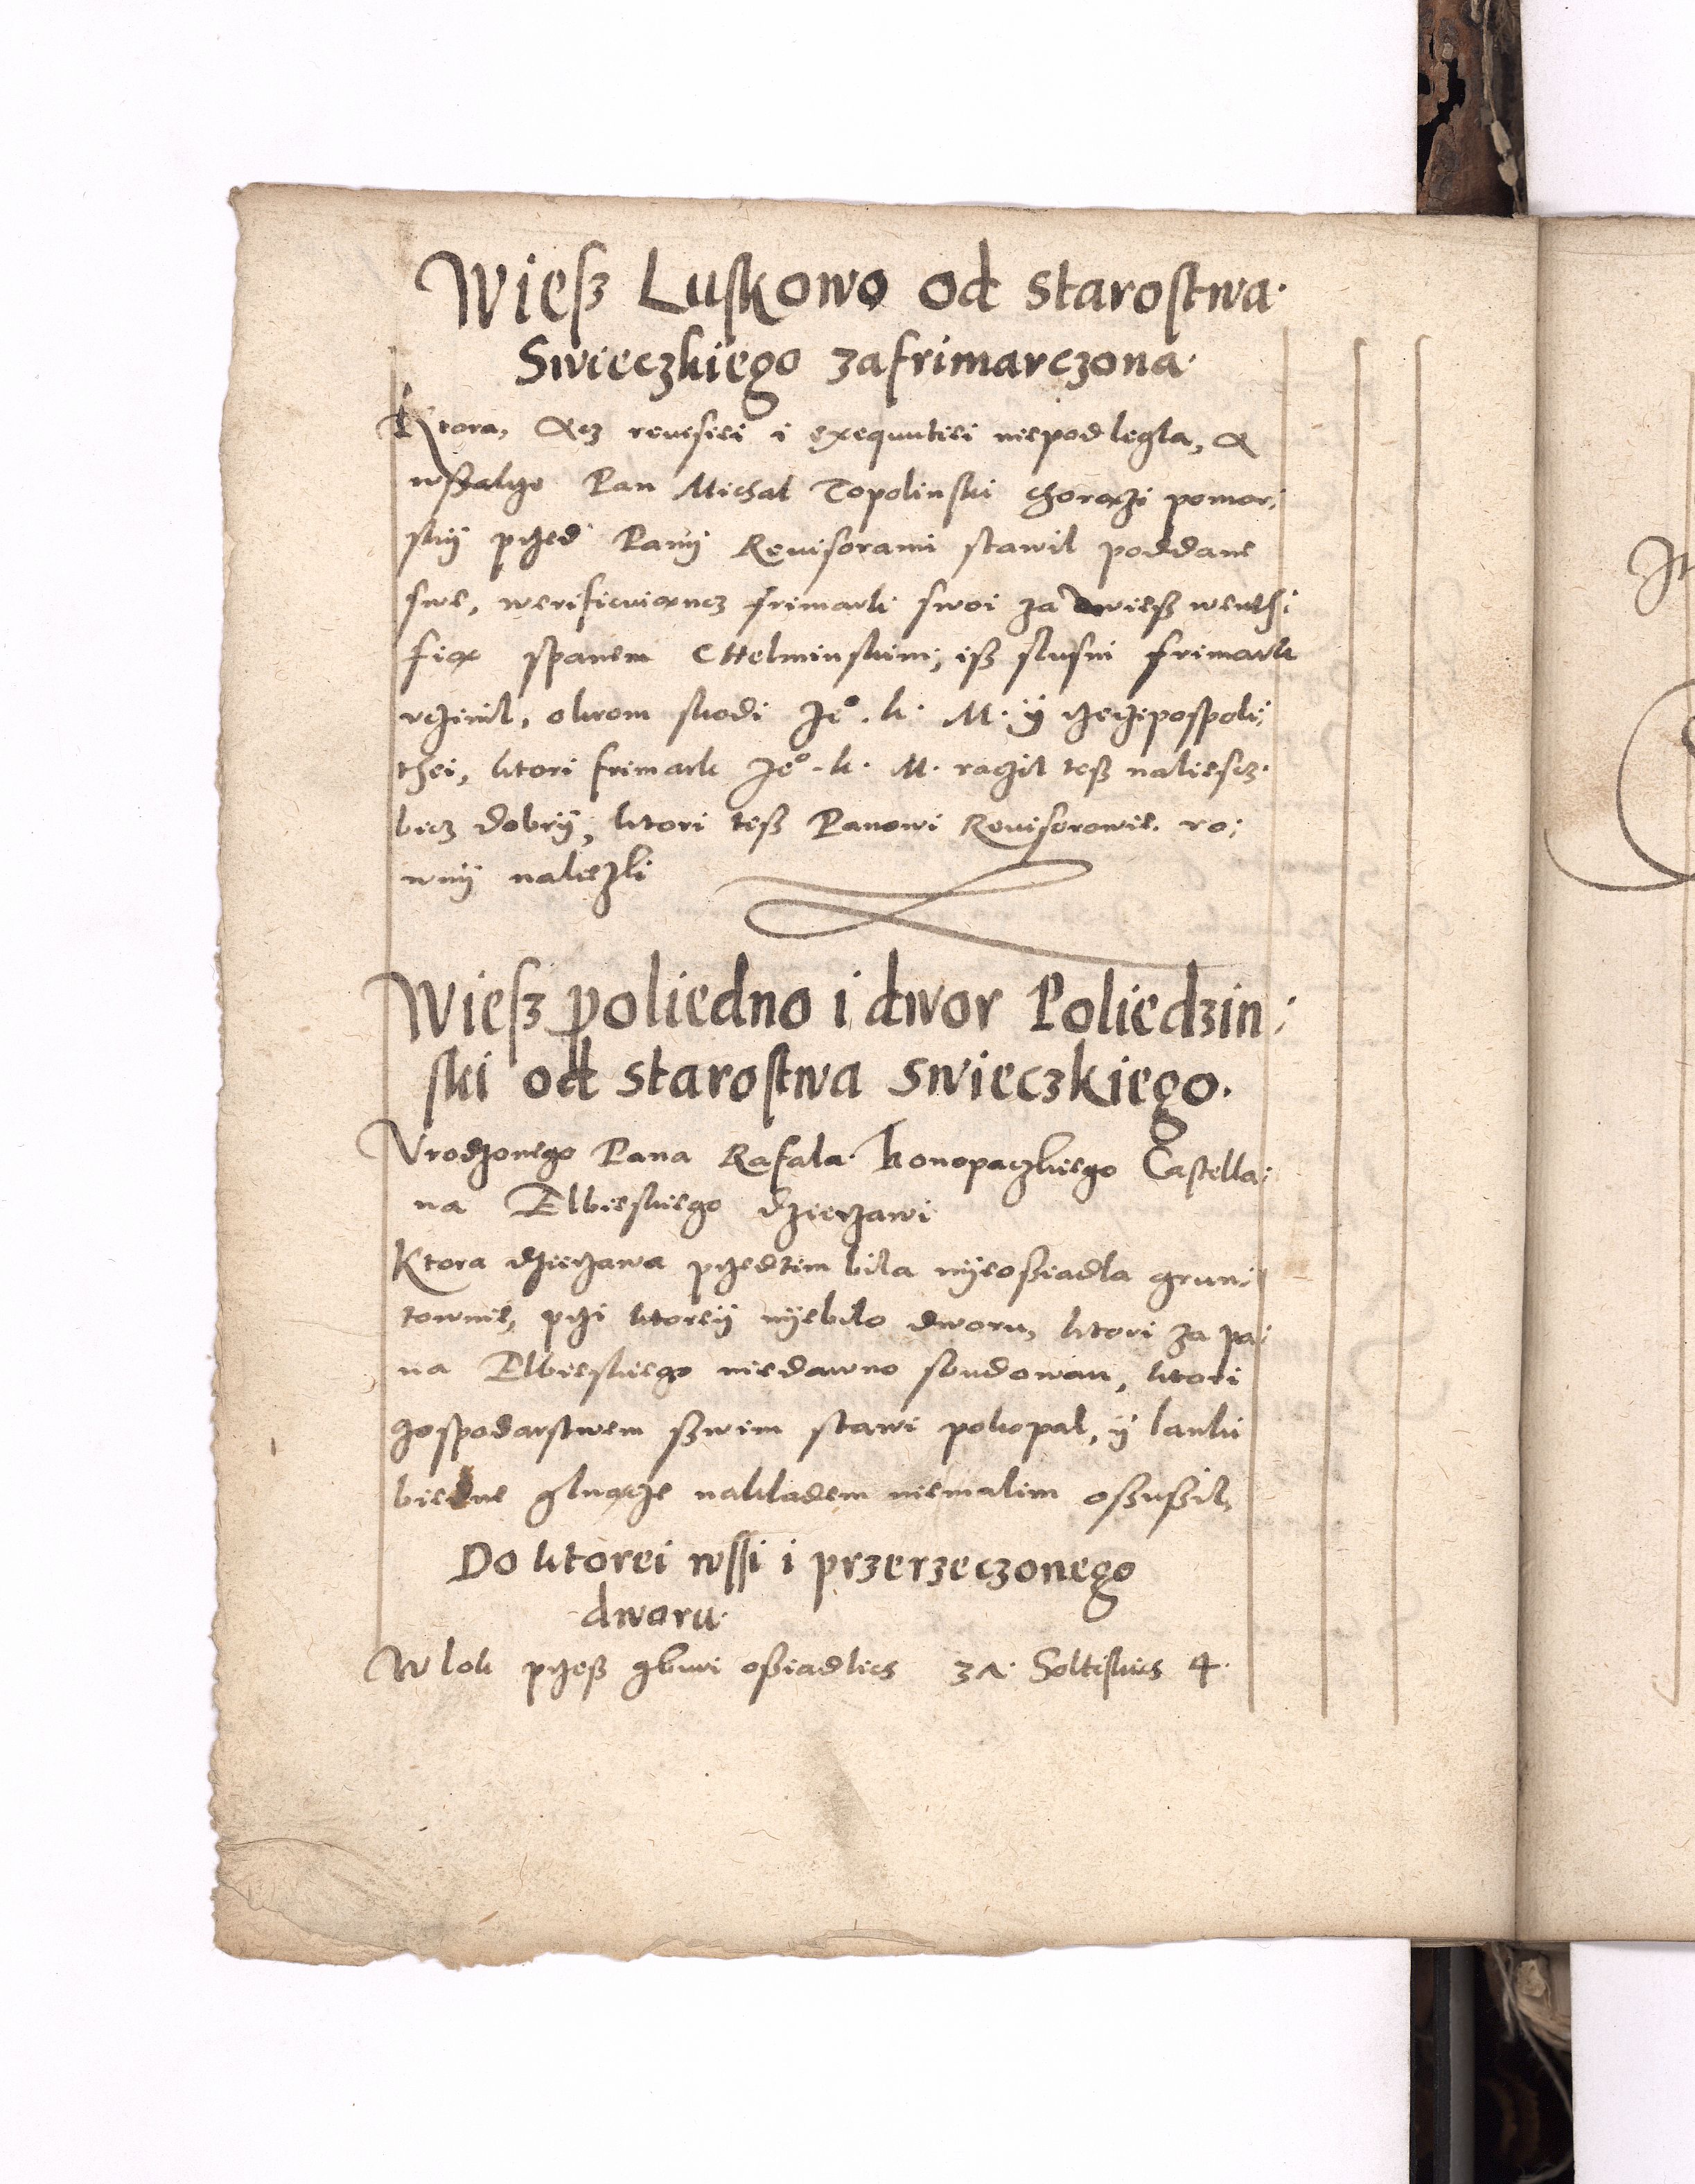 Wiesz Luskowo od starostwa.
Swieczkiego zafrimarczona.
Ktora, Acz reuisiei i exequutiei niepodlegla, A
wszakze Pan Michal Topolinski chorązi pomor:
skÿ przed Panÿ Reuisorami stawil poddane
swe, werificuiancz frimark swoi za wiesz
spanem Chelminskim, isz slusni frimark
vczinil, okrom skodi Jeº. k. M. ÿ rzeczipospoli:
thei, ktori frimark Jeº. k. M. raczil tesz naliescz.
bicz dobrÿ, ktori tesz Panowi Reuisorowie. ro:
wnÿ nalezli
Wiesz poliedno i dwor Poliedzin:
ski od starostwa swieczkiego.
Vrodzonego Pana Rafala. konopaczkiego Castella:
na Elbieskiego dzierzawi
Ktora dzierzawa przedtim bila nÿeosziadla grun:
townie, przi ktoreÿ nÿebilo dworu, ktori za pa:
na Elbieskiego niedawno sbudowan, ktori
gospodarstwem szwim stawi pokopal, ÿ lanki
biedne gluącze nakladem niemalim oszuszil,
Do ktorei wssi i przerzeczonego
dworu.
Wlok przesz gburi osziadlics 3A. Soltiskics 4.
It